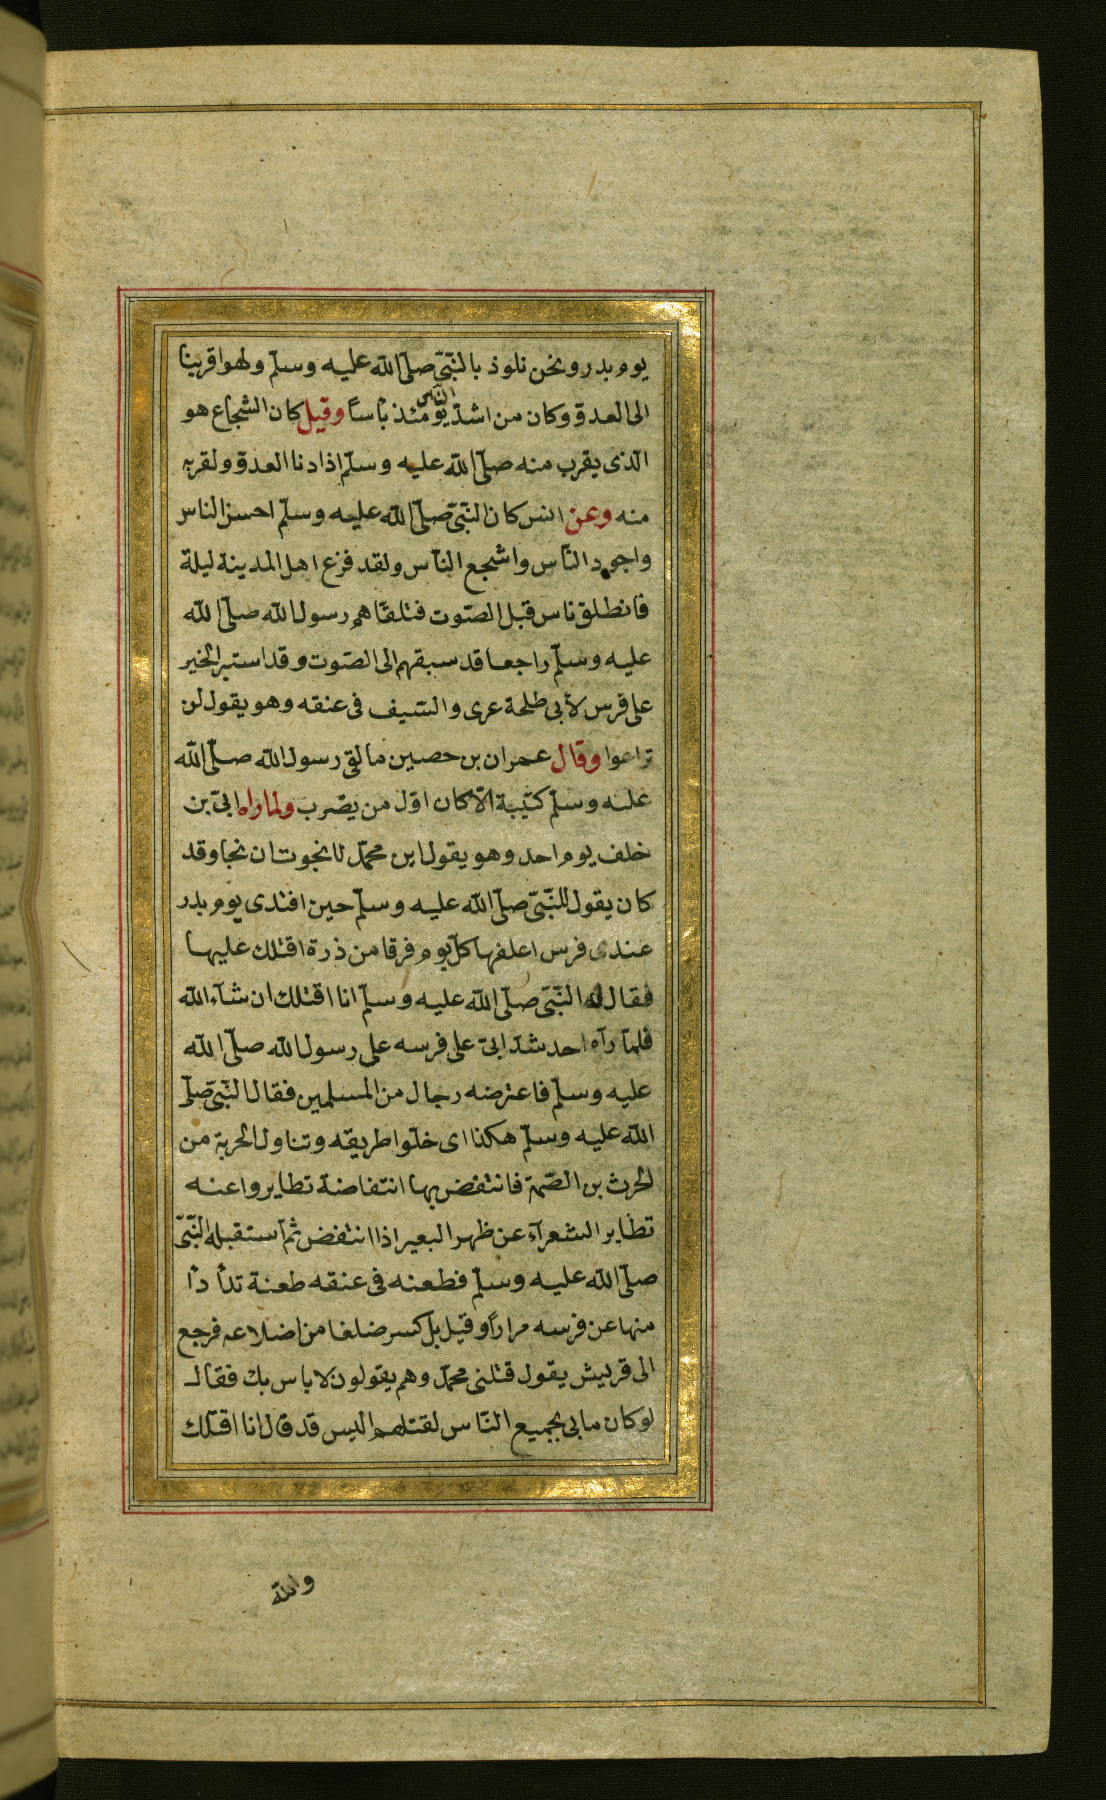 يوم بدر ونحن نلوذ بالنّبىّ صلّى الله عليه وسلّم ولهوا قربنا
الى العدوّ وكان من اشدّ النّاس يومئذ بأساً وقيل كان الشجاع هو
الّذى يقرب منه صلّى الله عليه وسلّم اذا دنا العدوّ ولقربه
منه وعن انس كان النّبىّ صلّى الله عليه وسلّم احسن الناس
واجود النّاس واشجع النّاس ولقد فزع اهل المدينة ليلة
فانطلق ناس قبل الصّوت فتلقّاهم رسول الله صلّى الله
عليه وسلّم راجعا قد سبقهم الى الصّوت وقد استبرا لخبر
على فرس لأبى طلحة عرى والسّيف فى عنقه وهو يقول لن
تراعوا وقال عمران بن حصين ما لقى رسول الله صلّى الله
عليه وسلّم كتيبة الّا كان اوّل من يضرب ولما راه ابىّ بن
خلف يوم احد وهو يقول اين محمّد لا نجوت ان نجا وقد
كان يقول للنّبىّ صلّى الله عليه وسلّم حين افتدى يوم بدر
عندى فرس اعلفها كلّ يوم فرقا من ذرة اقتلك عليها
فقال له النّبىّ صلّى الله عليه وسلّم انا اقتلك ان شآء الله
فلمّا رآه احد شدّ ابىّ على فرسه على رسول الله صلّى الله
عليه وسلّم فاعترضه رجال من المسلمين فقال النّبىّ صلّى
الله عليه وسلّم هكذا اى خلّوا طريقه وتناول الحربة من
الحرث بن الصّمّة فانتفض بها انتفاضة تطايروا عنه
تطاير الشعرآء عن ظهر البعير اذا انتفض ثم استقبله النّبىّ
صلّى الله عليه وسلّم فطعنه فى عنقه طعنة تدأدأ
منها عن فرسه مراراً وقيل بل كسر ضلعا من اضلاعه فرجع
الى قريش يقول قتلنى محمّد وهم يقولون لا باس بك فقال
لو كان ما بى بجميع النّاس لقتلهم اليس قد قال انا اقتلك
والله